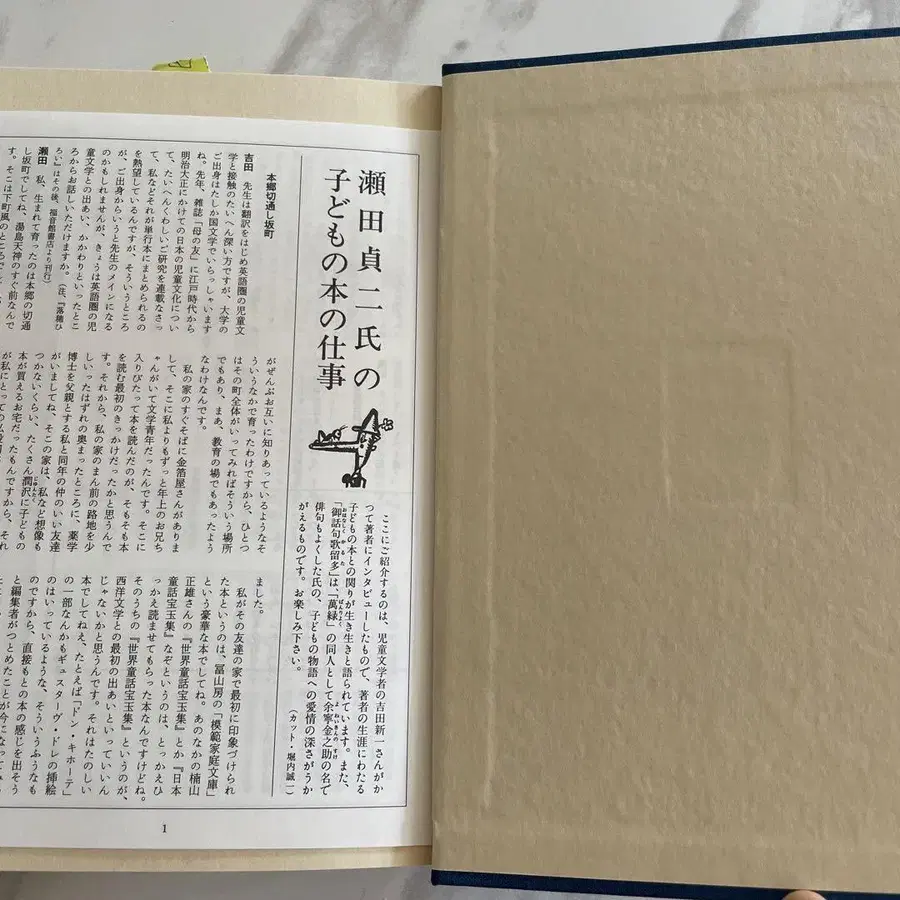 瀬田貞二氏の
子どもの本の仕事
ここにご紹介するのは、児童文学者の吉田新一さんがか
つて著者にインタビューしたもので、著者の生涯にわたる
子どもの本との関りが生き生きと語られています。また、
「御話句歌留多」は、「萬緑」の同人として余寧金之助の名で
俳句もよくした氏の、子どもの物語への愛情の深さがうか
がえるものです。お楽しみ下さい。
（カット・堀内誠一）
本郷切通し坂町
吉田　先生は翻訳をはじめ英語圏の児童文
学と接触のたいへん深い方ですが、大学の
ご出身はたしか国文学でいらっしゃいます
ね。先年、雑誌「母の友」に江戸時代から
明治大正にかけての日本の児童文化につい
て、たいへんくわしいご研究を連載なさっ
て、私などそれが単行本にまとめられるの
を熱望しているんですが、そういうところ
が、ご出身からいうと先生のメインになる
のかもしれませんが、きょうは英語圏の児
童文学との出あい、かかわりといったとこ
ろからお話しいただけますか。（注、『落穂ひ
ろい』はその後、福音館書店より刊行）
瀬田　私、生まれて育ったのは本郷の切通
し坂町でしてね、湯島天神のすぐ前なんで
す。そこは下町風のところで
がぜんぶお互いに知りあっているようなそ
ういうなかで育ったわけですから、ひとつ
はその町全体がいってみればそういう場所
でもあり、まあ、教育の場でもあったよう
なわけなんです。
私の家のすぐそばに金箔屋さんがありま
して、そこに私よりもずっと年上のお兄ち
ゃんがいて文学青年だったんです。そこに
入りびたって本を読んだのが、そもそも本
を読む最初のきっかけだったかと思うんで
す。それから、私の家のまん前の路地を少
しいったはずれの奥まったところに、薬学
博士を父親とする私と同年の仲のいい友達
がいましてね、そこの家は、私など想像も
つかないくらい、たくさん潤沢に子どもの
本が買えるお宅だったもんですから、それ
が私にとっての
ました。
私がその友達の家で最初に印象づけられ
た本というのは、冨山房の「模範家庭文庫」
という豪華な本でしてね。あのなかの楠山
正雄さんの『世界童話宝玉集』とか『日本
童話宝玉集』なぞというのは、とっかえひ
っかえ読ませてもらった本なんですけどね。
そのうちの『世界童話宝玉集』というのが、
西洋文学との最初の出あいといっていいん
じゃないかと思うんです。それはたのしい
本でしてねえ、たとえば「ドン・キホーテ」
の一部なんかもギュスターヴ・ドレの挿絵
のはいっているような、そういうふうなも
のですから、直接もとの本の感じを出そう
と編集者がつとめたことが今になってみ
1